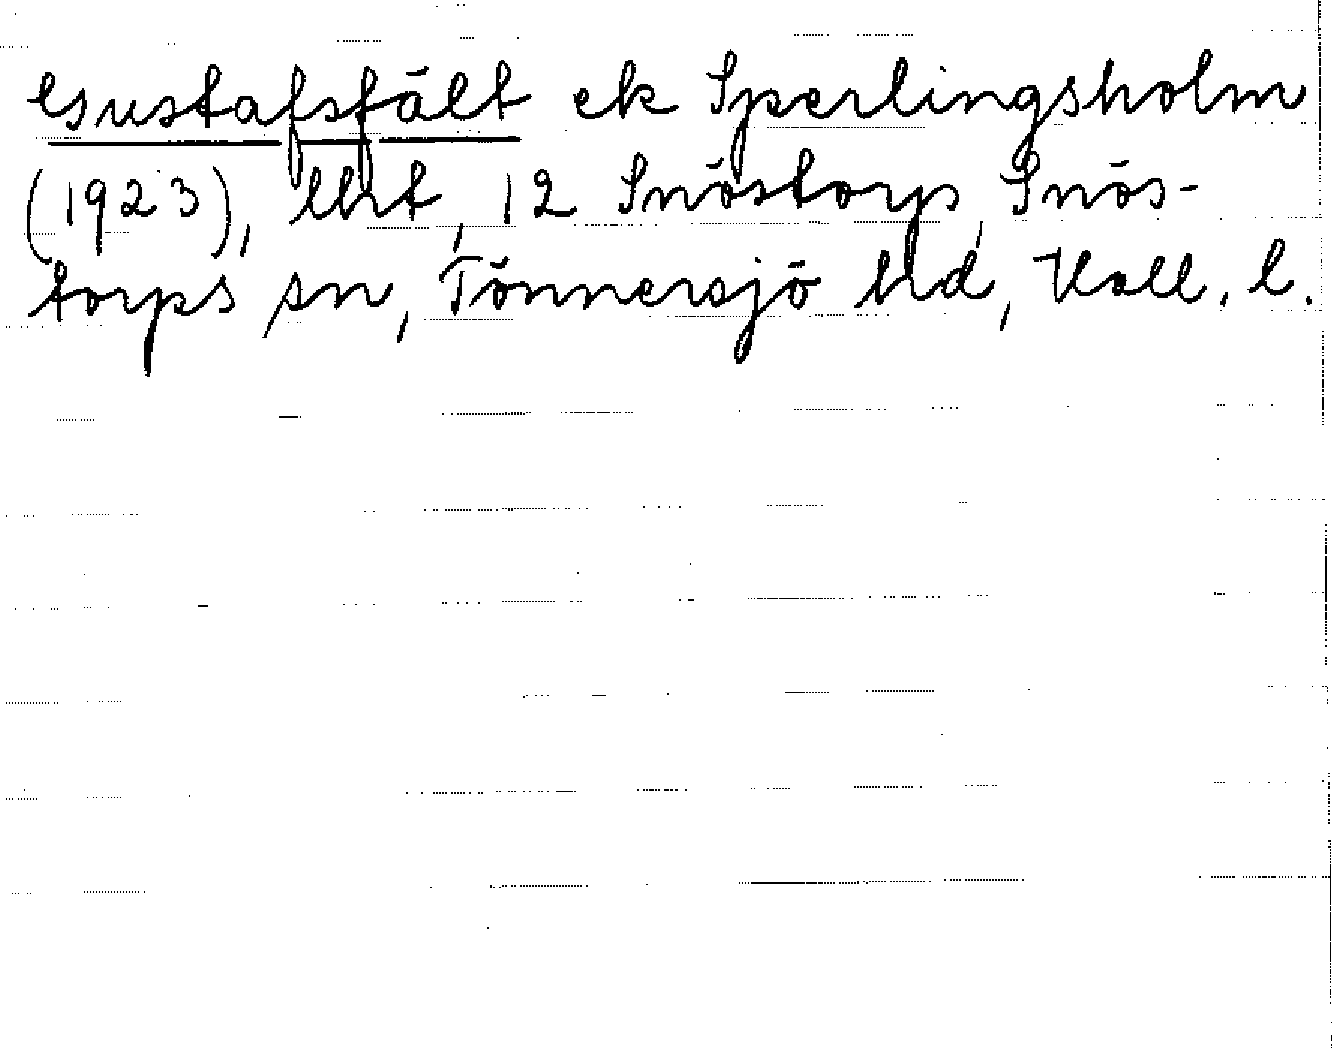 Gustafsfält ek Sperlingsholm
(1923), lht, 12 Snöstorp, Snös-
torps sn, Tönnersjö hd, Hall. l.